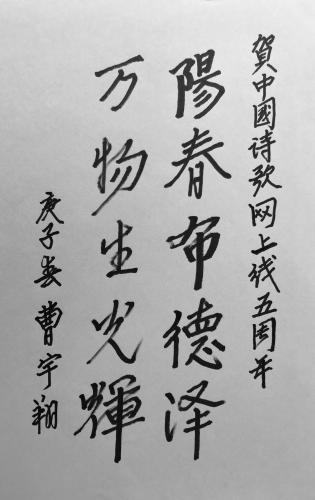 賀中國诗歌网上线五周年
陽春布德泽
万物生光輝
庚子春曹宇翔